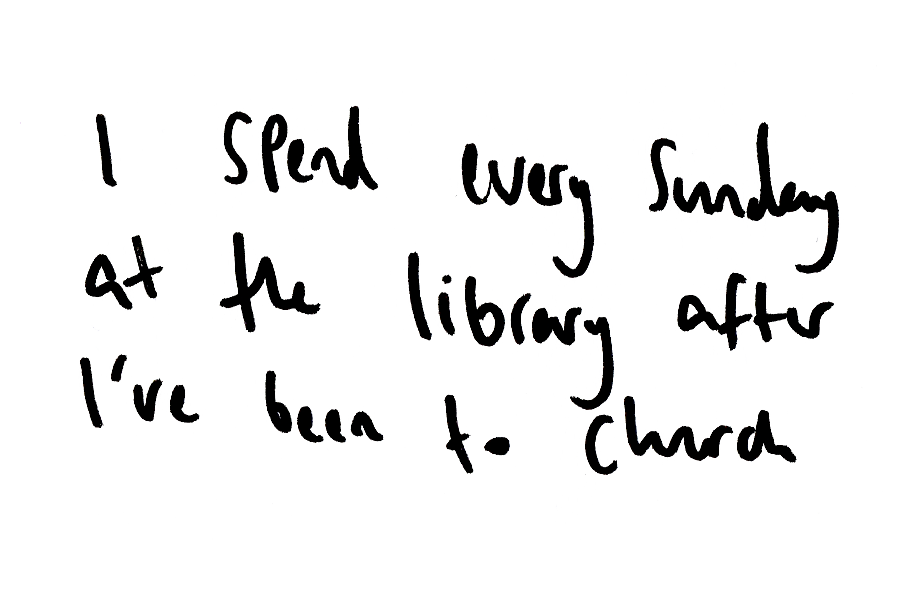 I spend every Sunday
at the library after
I've been to church